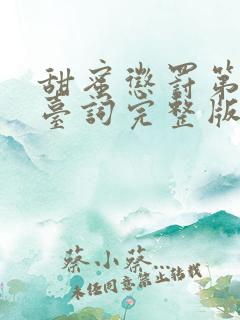 甜蜜懲罰第
臺詞完整版
蔡小蔡...
未经同意禁止转载